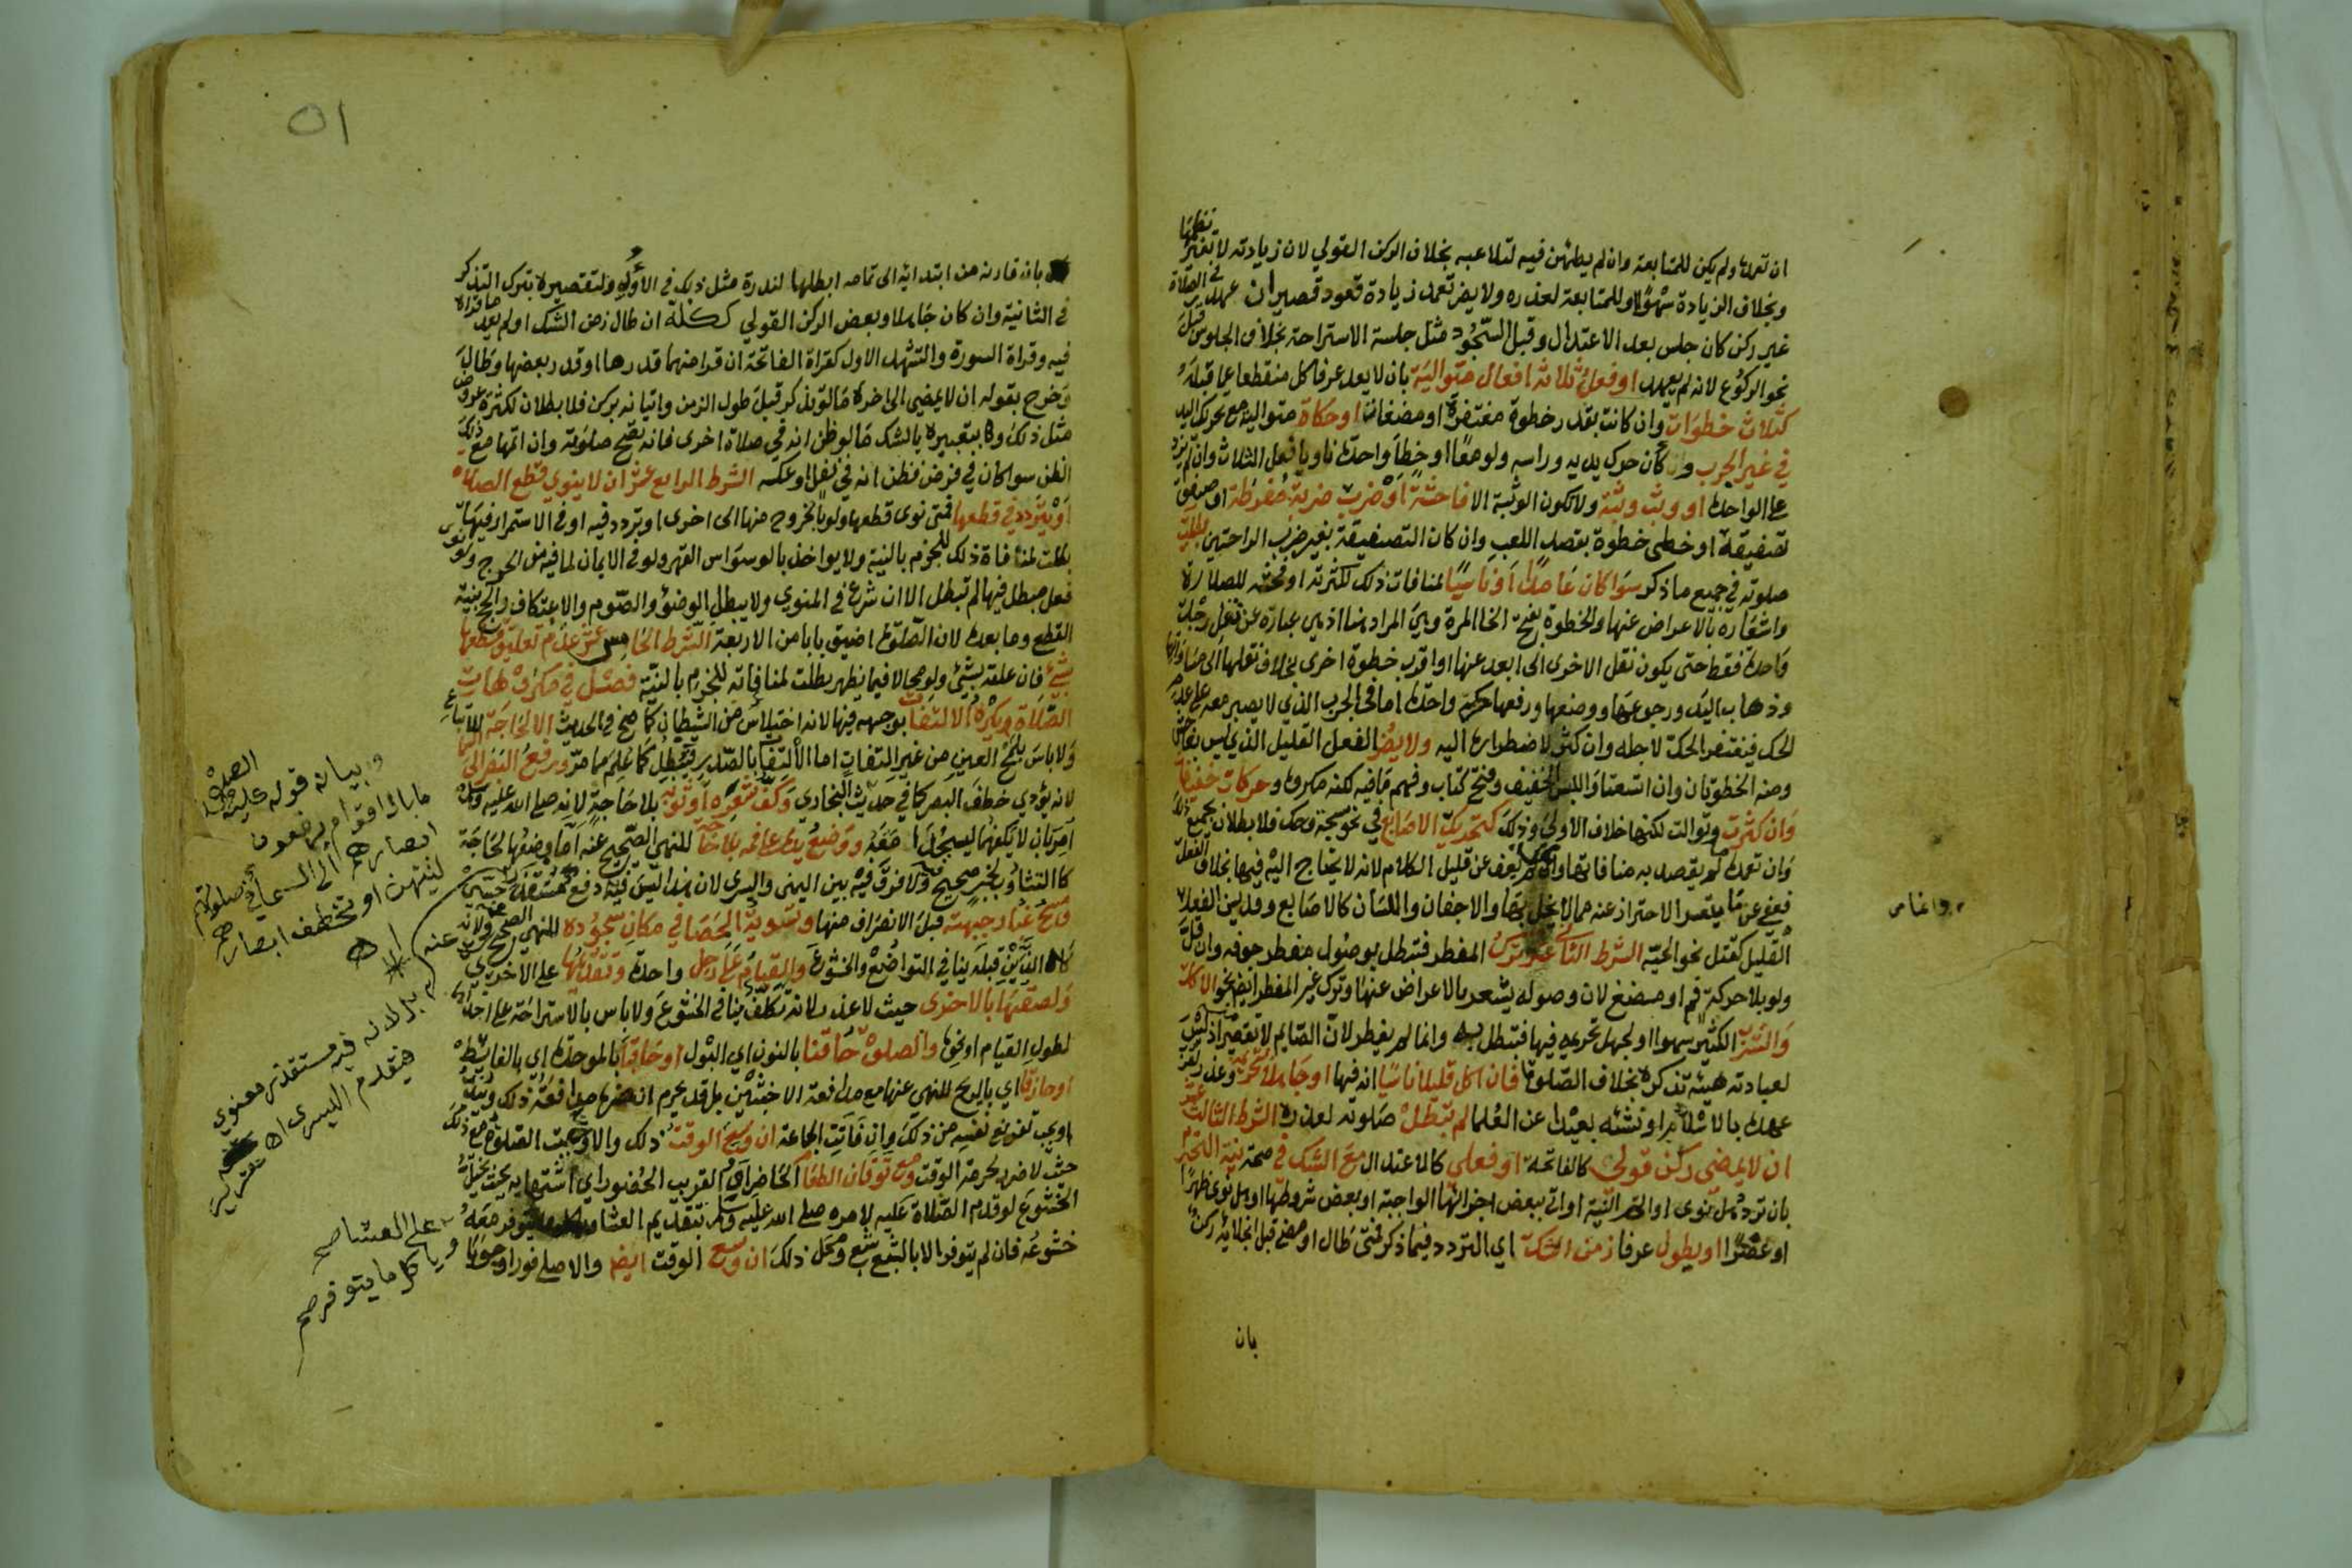 ان تعمدها ولم يكن للمتابعة وان لم يطمئن فيه لتلاعبه بخلاف الركن القولي لان زيادته لا تغير نظمها
وبخلاف الزيادة سهوا او للمتابعة لعذره ولا يضر تعمد زيادة قعود قصير ان عهد في الصلاة
غير ركن كان جلس بعد الاعتدال وقبل السجود مثل جلسة الاستراحة بخلاف الجلوس قبل
نحو الركوع لانه لم يعهد او فعل ثلاثة افعال متوالية بان لا يعد عرفا كل منقطعا عما قبله
كثلاث خطوات وان كانت بقدر خطوة مغتفرة او مضغات او حكات متوالية مع تحريك اليد
في غير الجرب وان كان حرك يديه وراسه ولو معا او خطا واحدة ناويا فعل الثلاث وان لم يزد
على الواحدة او وثب وثبة ولا تكون الوثبة الا فاحشة او ضرب ضربة مفرطة او صفق
تصفيقة او خطى خطوة بقصد اللعب وان كان التصفيقة بغير ضرب الراحتين بطلت
صلوته في جميع ما ذكر سوا كان عامدا او ناسيا لمنافات ذلك لكثرته او فحشه للصلاة
واشعاره بالاعراض عنها والخطوة بفتح الخا المرة وهي المراد هنا اذ هي عبارة عن نقل رجل
واحدة فقط حتى يكون نقل الاخرى الى ابعد عنها او اقرب خطوة اخرى بخلاف نقلها الى مساواتها
وذهاب اليد ورجوعها ووضعها ورفعها حركة واحدة اما في الجرب الذي لا يصبر معه على عدم
الحك فيغتفر الحك لاجله وان كثر لاضطراره اليه ولا يضر الفعل القليل الذي ليس بفاحش
ومنه الخطوتان وان اتسعتا واللبس الخفيف وفتح كتاب وفهم ما فيه لكنه مكروه وحركات خفيفة
وان كثرت وتوالت لكنها خلاف الاولى وذلك كتحريك الاصابع في نحو سبحة وحك فلا بطلان بجميع ذلك
وان تعمده ما لم يقصد به منافاتها وانما لم يعف عن قليل الكلام لانه لا يحتاج اليه فيها بخلاف الفعل
فعفي عن ما يتعسر الاحتراز عنه مما لا يخل بها والاجفان واللسان كالاصابع وقد يسن الفعل
القليل كقتل نحو الحية الشرط الثاني عشر ترك المفطر فتبطل بوصول مفطر جوفه وان قل
ولو بلا حركة فم او مضغ لان وصوله يشعر بالاعراض عنها وترك غير المفطر ايضا نحو الاكل
والشرب الكثير سهوا او لجهل تحريمه فيها فتبطل به وانما لم يفطر لان الصايم لا تقصير اذ ليس
لعبادته هيئة تذكره بخلاف الصلوة فان اكل قليلا ناسيا انه فيها او جاهلا لتحريمه وعذر لقرب
عهده بالاسلام او نشئه بعيدا عن العلما لم تبطل صلوته لعذره الشرط الثالث عشر
ان لا يمضي ركن قولي كالفاتحة او فعلي كالاعتدال مع الشك في صحة نية التحرم
بان تردد هل نوى او اتم النية او اتى ببعض اجزائها الواجبة او بعض شروطها او هل نوى ظهرا
او عصرا او يطول عرفا زمن الشك اي التردد فيما ذكر فمتى طال او مضى قبل انجلائه ركن
وانما س
بان
٥١
بان قارنه من ابتدائه الى تمامه ابطلها لندرة مثل ذلك في الاولى ولتقصيره بترك التذكر
في الثانية وان كان جاهلا وبعض الركن القولي ككله ان طال زمن الشك او لم يعد ما قراه
فيه وقراة السورة والتشهد الاول كقراة الفاتحة ان قرا منهما قدرها او قدر بعضها وطال
وخرج بقوله ان لا يمضي الى اخره ما لو تذكر قبل طول الزمن واتيانه بركن فلا بطلان لكثرة عروض
مثل ذلك وبتعبيره بالشك ما لو ظن انه في صلاة اخرى فانه تصح صلوته وان اتمها مع ذلك
الظن سوا كان في فرض فظن انه في نفل او عكسه الشرط الرابع عشر ان لا ينوي قطع الصلاة
او يتردد في قطعها فمتى نوى قطعها ولو بالخروج منها الى اخرى او تردد فيه او في الاستمرار فيها
بطلت لمنافاة ذلك للجزم بالنية ولا يواخذ بالوسواس القهري ولو في الايمان لما فيه من الحرج ولو نوى
فعل مبطل فيها لم تبطل الا ان شرع في المنوي ولا يبطل الوضوء والصوم والاعتكاف والحج بنية
القطع وما بعده لان الصلوة اضيق بابا من الاربعة الشرط الخامس عشر عدم تعليق قطعها
بشيء فان علقه بشيء ولو محالا فيما يظهر بطلت لمنافاته للجزم بالنية فصل في مكروهات
الصلاة ويكره الالتفات بوجهه فيها لانه اختلاس من الشيطان كما صح في الحديث الا لحاجة للاتباع
ولا باس بلمح العين من غير التفات اما الالتفات بالصدر فيبطل كما علم مما مر ورفع البصر الى السما
لانه يؤدي خطف البصر كما في حديث البخاري وكف شعره او ثوبه بلا حاجة لانه صلى الله عليه وسلم
امر بان لا يكفهما ليسجدا معه ووضع يده على فمه بلا حاجة للنهي الصحيح عنه اما وضعها لحاجة
كالتثاؤب لخبر صحيح ولا فرق فيه بين اليمنى واليسرى لان هذا ليس فيه دفع مستقذر حسي
ومسح غبار جبهته قبل الانصراف منها وتسوية الحصا في مكان سجوده للنهي الصحيح عنه ولانه
كالذين قبله ينافي التواضع والخشوع والقيام على رجل واحدة وتقديمها على الاخرى
ولصقها بالاخرى حيث لا عذر لانه تكلف ينافي الخشوع ولا باس بالاستراحة على احداهما
لطول القيام او نحوه والصلوة حاقنا بالنون اي البول او حاقبا بالموحدة اي بالغايط
او حازقا اي بالريح للنهي عنها مع مدافعة الاخبثين بل قد يحرم ان ضره مدافعة ذلك ويندب
او يجب تفريغ نفسه من ذلك وان فاتت الجماعة ان وسع الوقت ذلك والا وجبت الصلوة مع ذلك
حيث لا ضرر لحرمة الوقت ومع توقان الطعام الحاضر او القريب الحضور اي اشتهايه بحيث يختل
الخشوع لو قدم الصلاة عليه لامره صلى الله عليه وسلم بتقديم العشا ما يتوفر معه
خشوعه فان لم يتوفر الا بالشبع شبع ومحل ذلك ان وسع الوقت ايضا والا صلى فورا وجوبا
وبيانه قوله عليه الصلاة
ما بال اقوام يرفعون
ابصارهم الى السما في صلوتهم
لينتهن او تخطف ابصارهم
اه
بل لانه فيه مستقذر معنوي
فيقدم اليسرى اه تقرير
على العشا صح
وياكل ما يتوفر صح